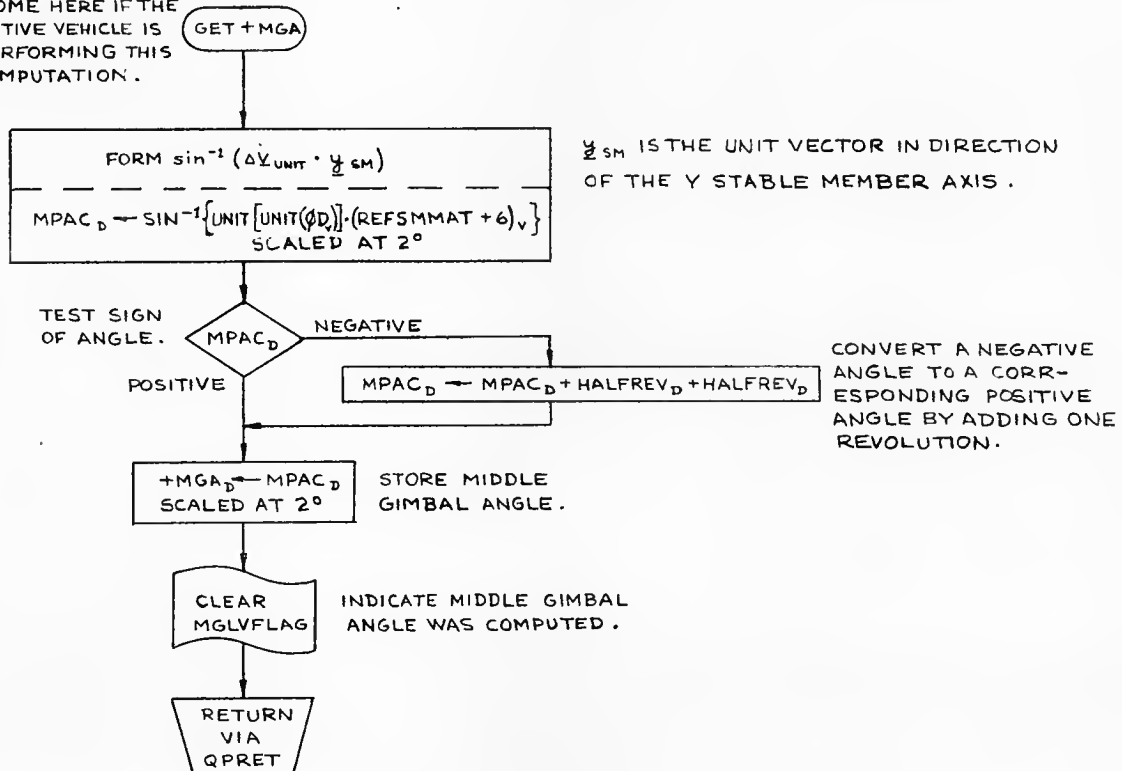 OME HERE IF THE
TIVE VEHICLE IS
RFORMING THIS
MPUTATION.
GET + MGA
FORM sin⁻¹ (ΔV̲UNIT · y̲SM)
MPAC_D ← SIN⁻¹{UNIT[UNIT(ØD_V)]·(REFSMMAT + 6)_V}
SCALED AT 2⁰
y̲SM IS THE UNIT VECTOR IN DIRECTION
OF THE Y STABLE MEMBER AXIS.
TEST SIGN
OF ANGLE.
MPAC_D
NEGATIVE
POSITIVE
MPAC_D ← MPAC_D + HALFREV_D + HALFREV_D
CONVERT A NEGATIVE
ANGLE TO A CORR-
ESPONDING POSITIVE
ANGLE BY ADDING ONE
REVOLUTION.
+MGA_D ← MPAC_D
SCALED AT 2⁰
STORE MIDDLE
GIMBAL ANGLE.
CLEAR
MGLVFLAG
INDICATE MIDDLE GIMBAL
ANGLE WAS COMPUTED.
RETURN
VIA
QPRET